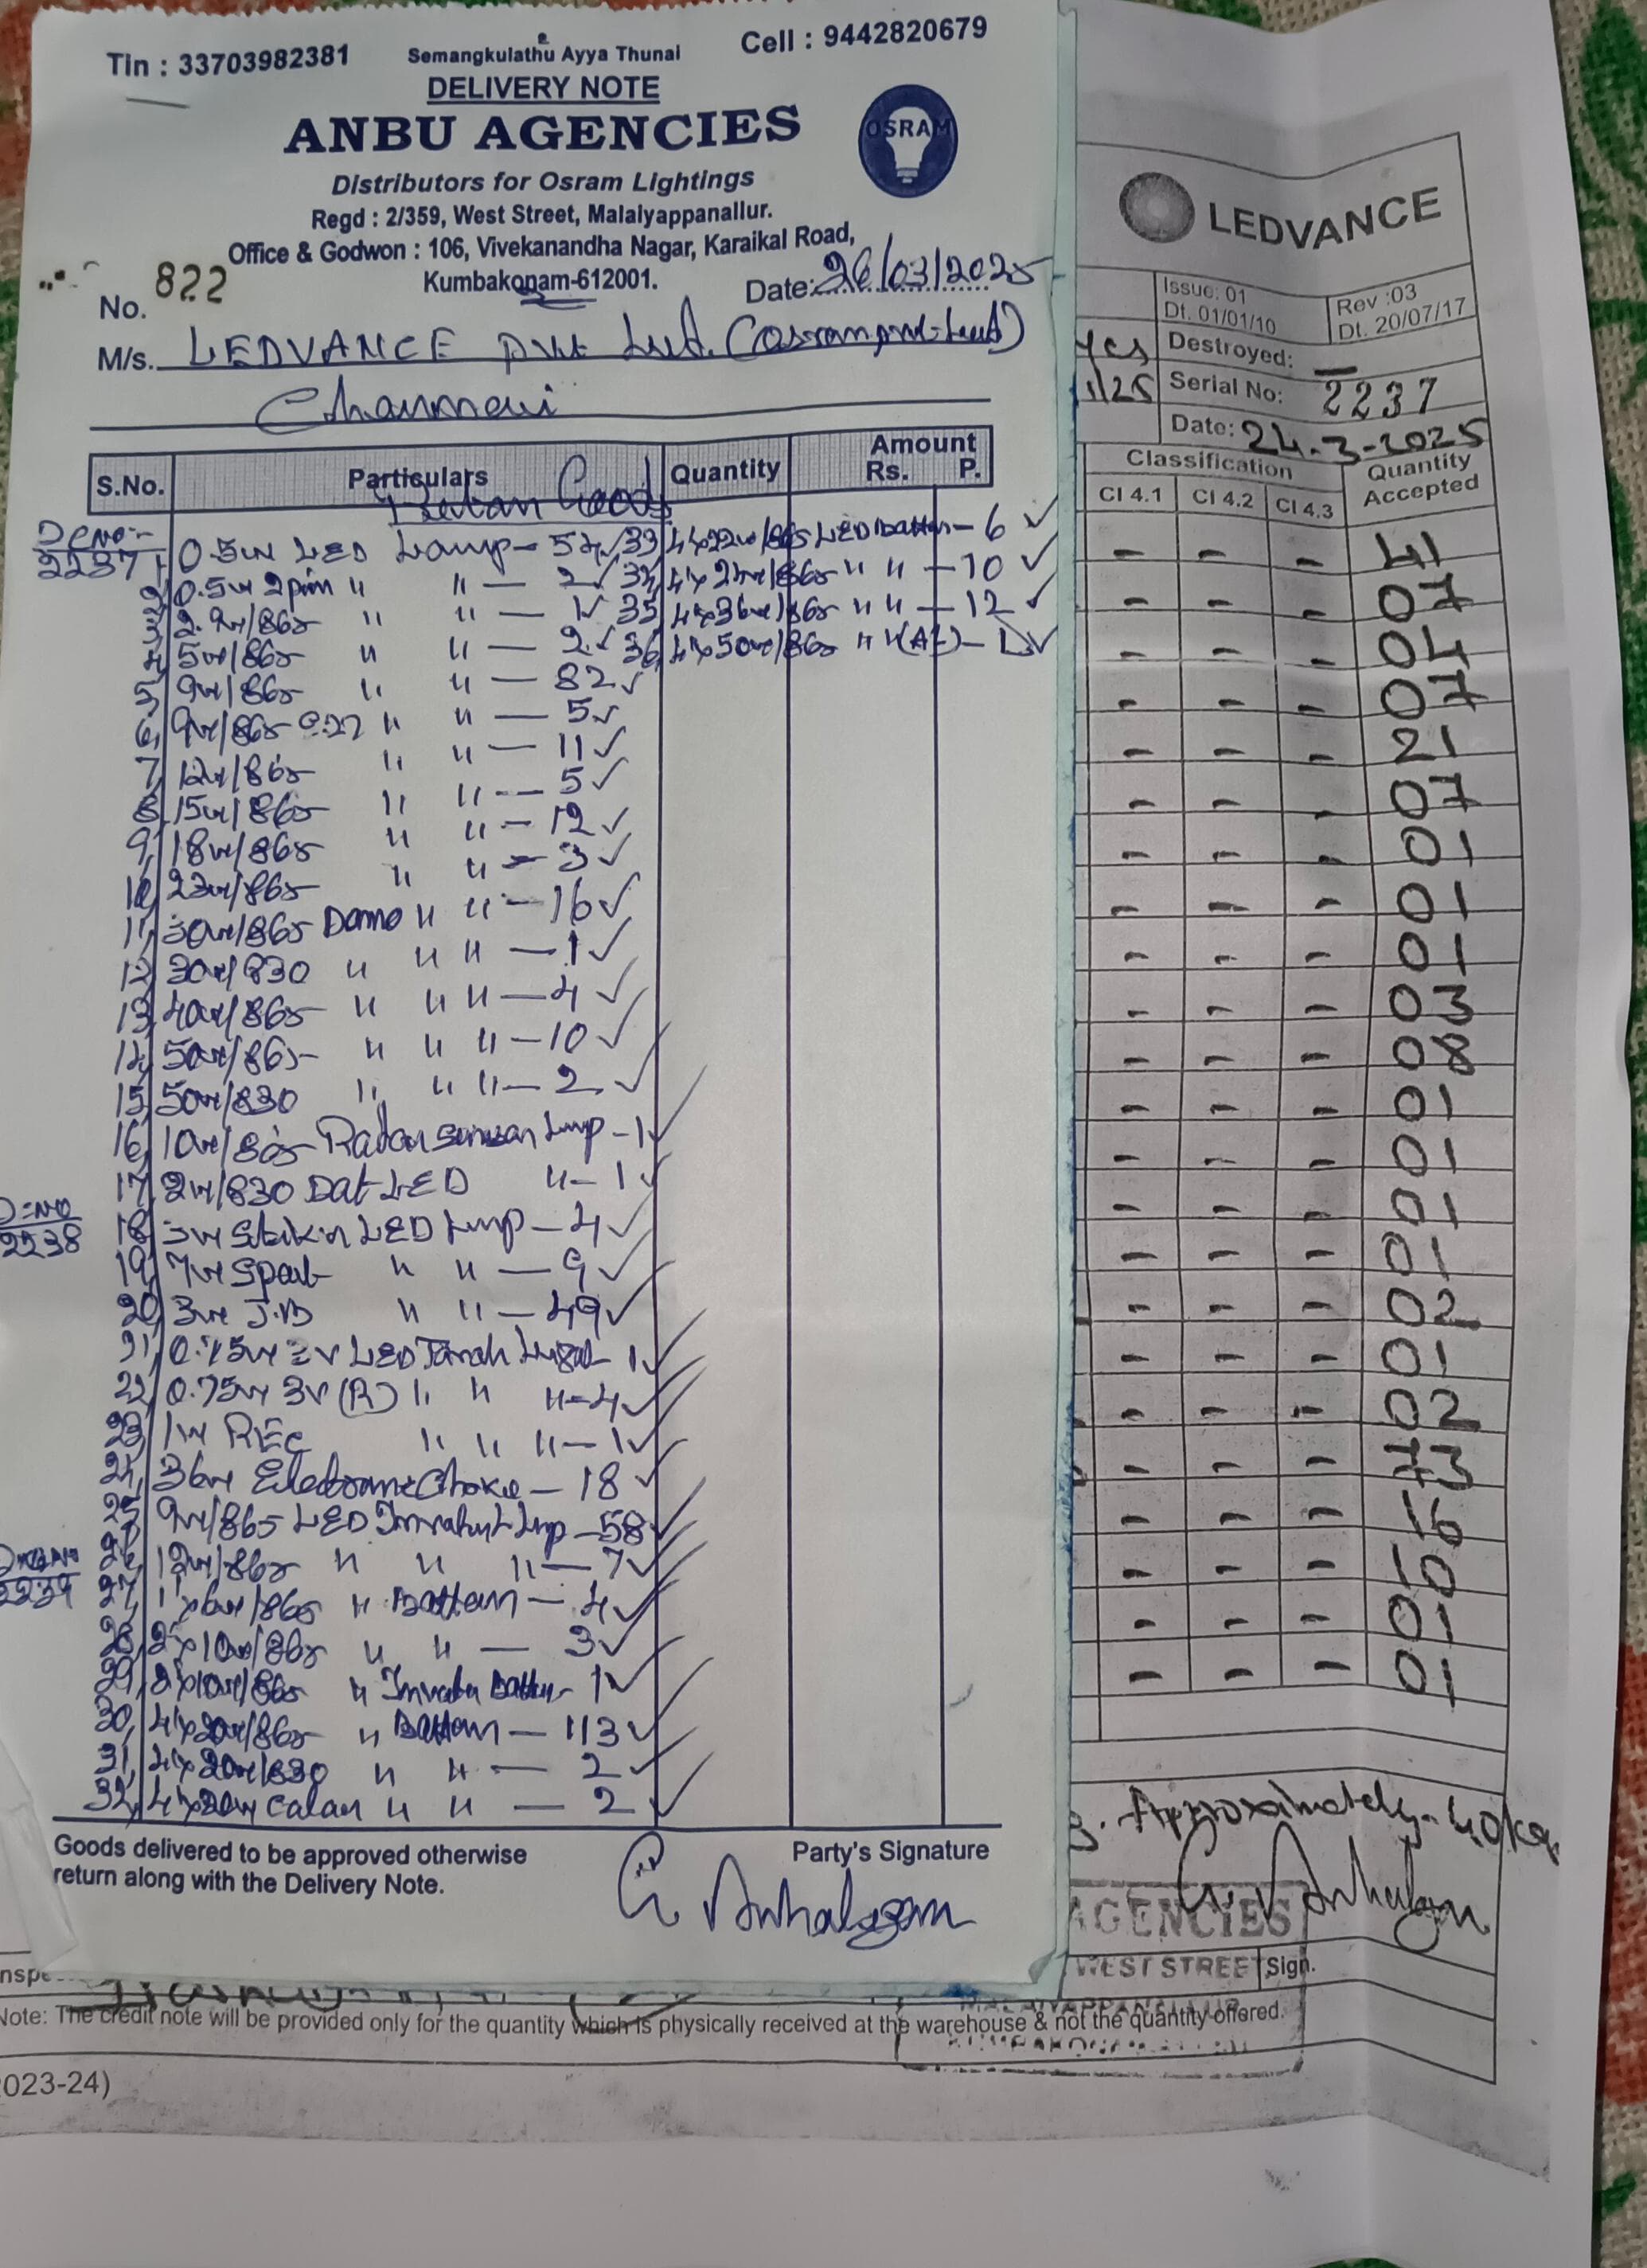 Tin : 33703982381
Semangkulathu Ayya Thunai
Cell : 9442820679
DELIVERY NOTE
ANBU AGENCIES
OSRAM
Distributors for Osram Lightings
Regd : 2/359, West Street, Malaiyappanallur.
Office & Godwon : 106, Vivekanandha Nagar, Karaikal Road,
Kumbakonam-612001.
No. 822
Date: 26/03/2025
M/s. LEDVANCE Pvt Ltd. (Osram
S.No. Particulars Quantity Amount Rs. P.
Goods
2237
1, 0.5w LED Lamp - 54
2, 0.5w 2pin " " - 2
3, 2.9w/865 " " - 1
4, 5w/865 " " - 2
5, 9w/865 " " - 82
6, 9w/865 B22 " " - 5
7, 12w/865 " " - 11
8, 15w/865 " " - 5
9, 18w/865 " " - 12
10, 23w/865 " " - 3
11, 30w/865 Domo " " - 16
12, 30w/830 " " " - 1
13, 40w/865 " " " - 4
14, 50w/865 " " " - 10
15, 50w/830 " " " - 2
16, 10w/865 Lmp - 1
17, 2w/830 LED " - 1
2238
18, 3w LED Lmp - 4
19, 7w Spot " " - 9
20, 3w J.B " " - 49
21, LED - 1
22, 0.75w 3v (R) " " " - 4
23, 1w REC " " " - 1
24, 36w Electronic Choke - 18
25, 9w/865 LED Lmp - 58
26, 12w/865 " " " - 7
2239
27, 1'x6w/865 " Batten - 4
28, 2'x10w/865 " " - 3
29, 2'x10w/865 " - 1
30, 4'x20w/865 " Batten - 113
31, 4'x20w/830 " " - 2
32, 4'x20w " " - 2
33, 4'x22w/865 LED Batten - 6
34, " " - 10
35, 4'x36w/865 " " - 12
36, 4'x50w/865 " "
Goods delivered to be approved otherwise
return along with the Delivery Note.
Party's Signature
LEDVANCE
Issue: 01
Dt. 01/01/10
Rev :03
Dt. 20/07/17
Yes
Destroyed: -
1/25
Serial No: 2237
Date: 24-3-2025
Classification
Quantity Accepted
Cl 4.1 Cl 4.2 Cl 4.3
- - - 41
- - - 07
- - - 04
- - - 07
- - - 21
- - - 07
- - - 01
- - - 01
- - - 01
- - - 03
- - - 08
- - - 01
- - - 01
- - - 01
- - - 01
- - - 02
- - - 01
- - - 02
- - - 73
- - - 16
- - - 10
- - - 01
- - - 01
Approximately
AGENCIES
WEST STREET
Sign.
Note: The credit note will be provided only for the quantity which is physically received at the warehouse & not the quantity offered.
023-24)